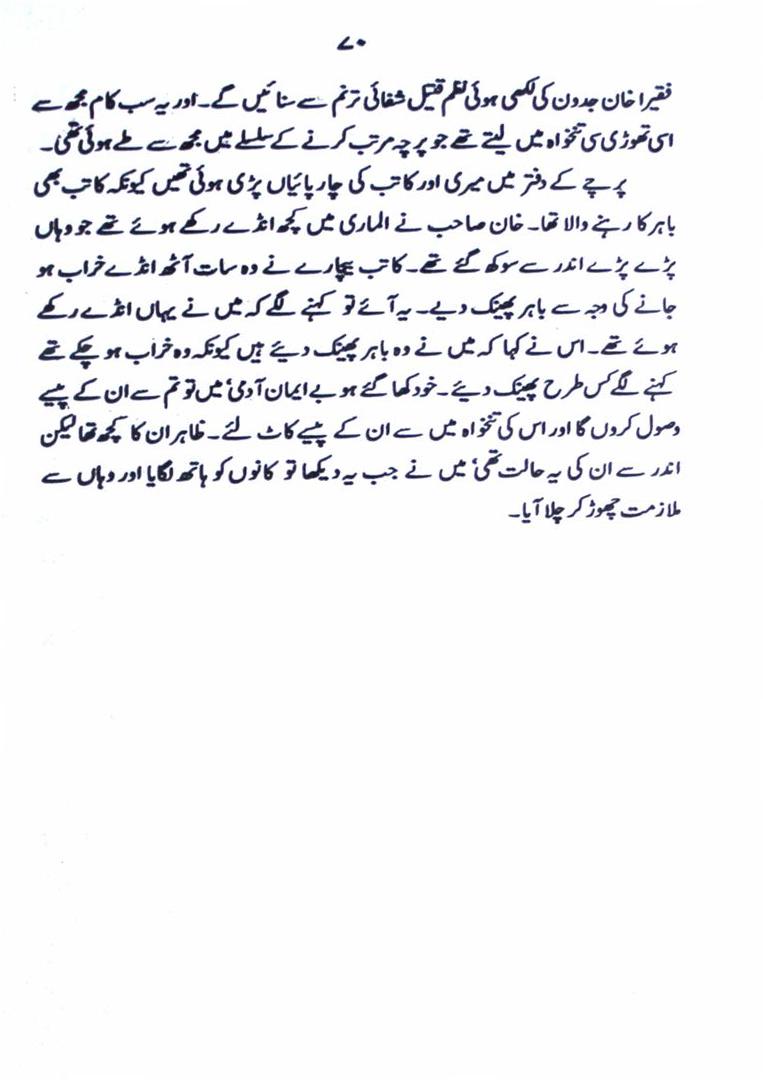 ۷۰
فقیرا خان جدون کی لکھی ہوئی نظم قتیل شفائی ترنم سے سنائیں گے۔ اور یہ سب کام مجھ سے
اسی تھوڑی سی تنخواہ میں لیتے تھے جو پرچہ مرتب کرنے کے سلسلے میں مجھ سے طے ہوئی تھی۔
پرچے کے دفتر میں میری اور کاتب کی چارپائیاں پڑی ہوئی تھیں کیونکہ کاتب بھی
باہر کا رہنے والا تھا۔ خان صاحب نے الماری میں کچھ انڈے رکھے ہوئے تھے جو وہاں
پڑے پڑے اندر سے سوکھ گئے تھے۔ کاتب بیچارے نے وہ سات آٹھ انڈے خراب ہو
جانے کی وجہ سے باہر پھینک دیے۔ یہ آئے تو کہنے لگے کہ میں نے یہاں انڈے رکھے
ہوئے تھے۔ اس نے کہا کہ میں نے وہ باہر پھینک دیئے ہیں کیونکہ وہ خراب ہو چکے تھے
کہنے لگے کس طرح پھینک دیئے۔ خود کھا گئے ہو بے ایمان آدمی‘ میں تو تم سے ان کے پیسے
وصول کروں گا اور اس کی تنخواہ میں سے ان کے پیسے کاٹ لئے۔ ظاہر ان کا کچھ تھا لیکن
اندر سے ان کی یہ حالت تھی‘ میں نے جب یہ دیکھا تو کانوں کو ہاتھ لگایا اور وہاں سے
ملازمت چھوڑ کر چلا آیا۔